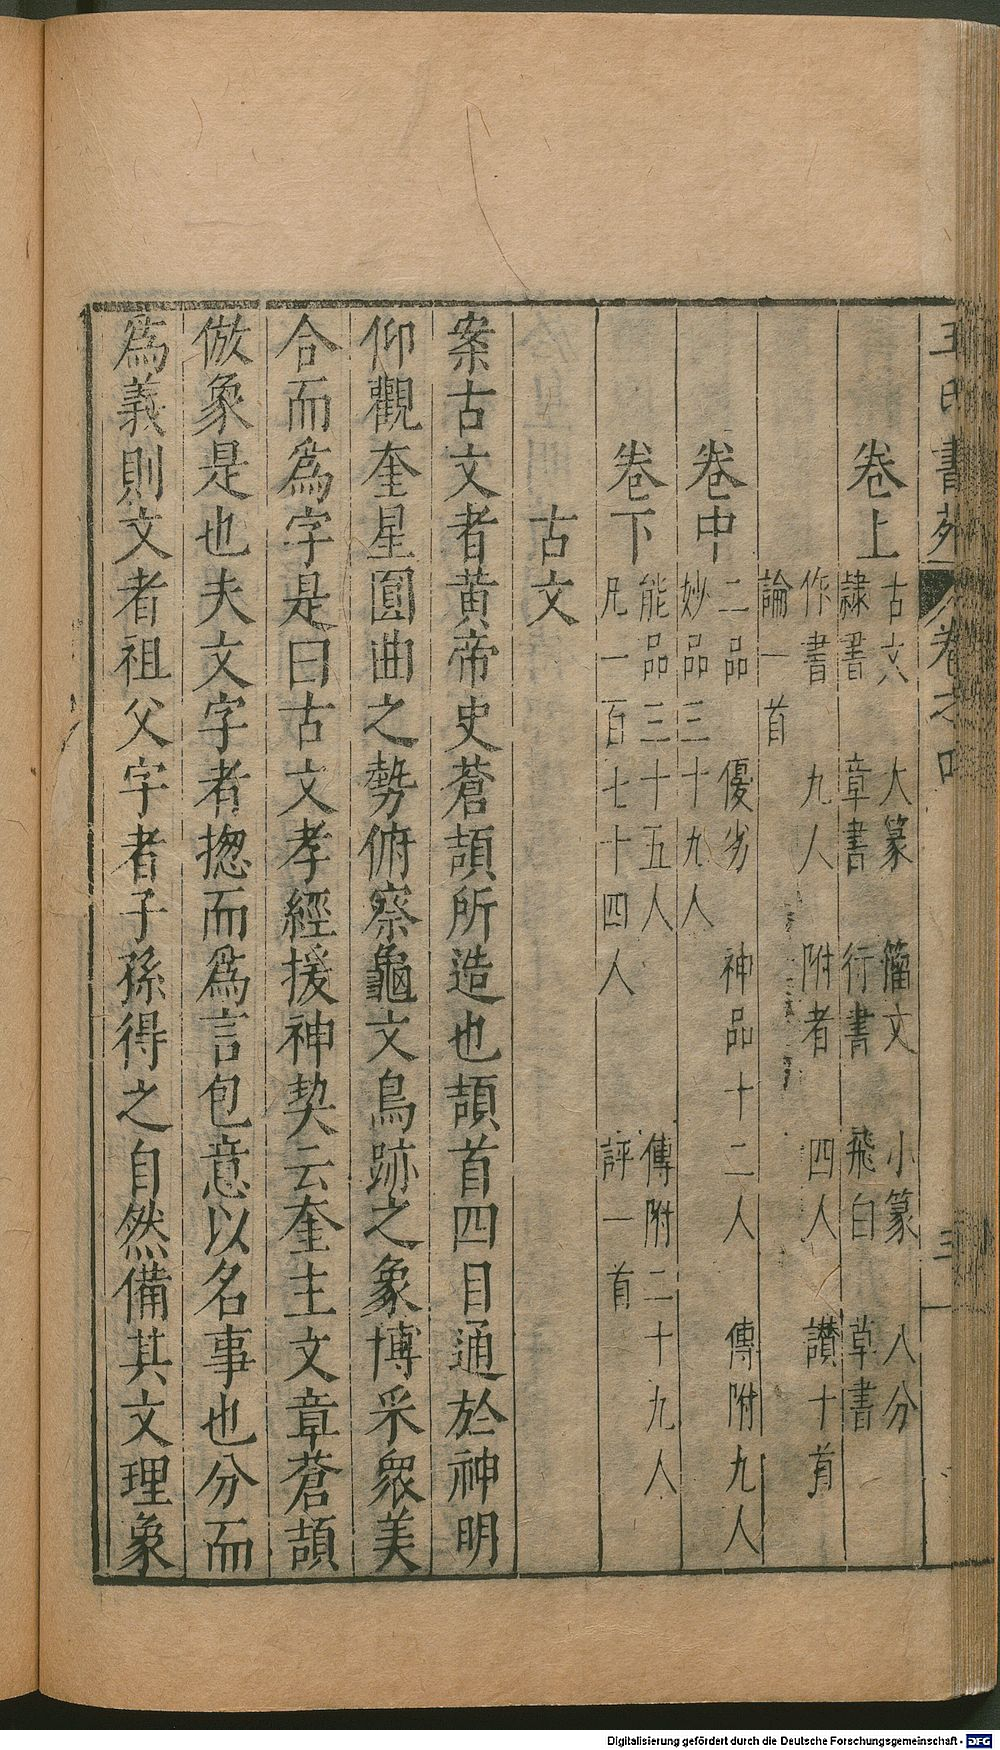 王氏書苑 卷之四 三
卷上
古文 大篆 籀文 小篆 八分
隸書 章書 行書 飛白 草書
作書 九人 附者 四人 讃十首
論一首
卷中
二品 優劣 神品十二人 傳附九人
妙品三十九人
卷下
能品三十五人 傳附二十九人
凡一百七十四人 評一首
古文
案古文者黄帝史蒼頡所造也頡首四目通於神明
仰觀奎星圓曲之勢俯察龜文鳥跡之象博采衆美
合而爲字是曰古文孝經援神契云奎主文章蒼頡
倣象是也夫文字者揔而爲言包意以名事也分而
爲義則文者祖父字者子孫得之自然備其文理象
Digitalisierung gefördert durch die Deutsche Forschungsgemeinschaft - DFG